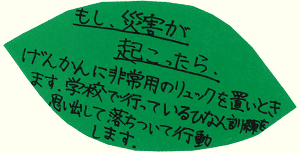 もし、災害が
起こったら、
げんかんに非常用のリュックを置いとき
ます。学校で行っているひなん訓練を
思い出して落ちついて行動
します。